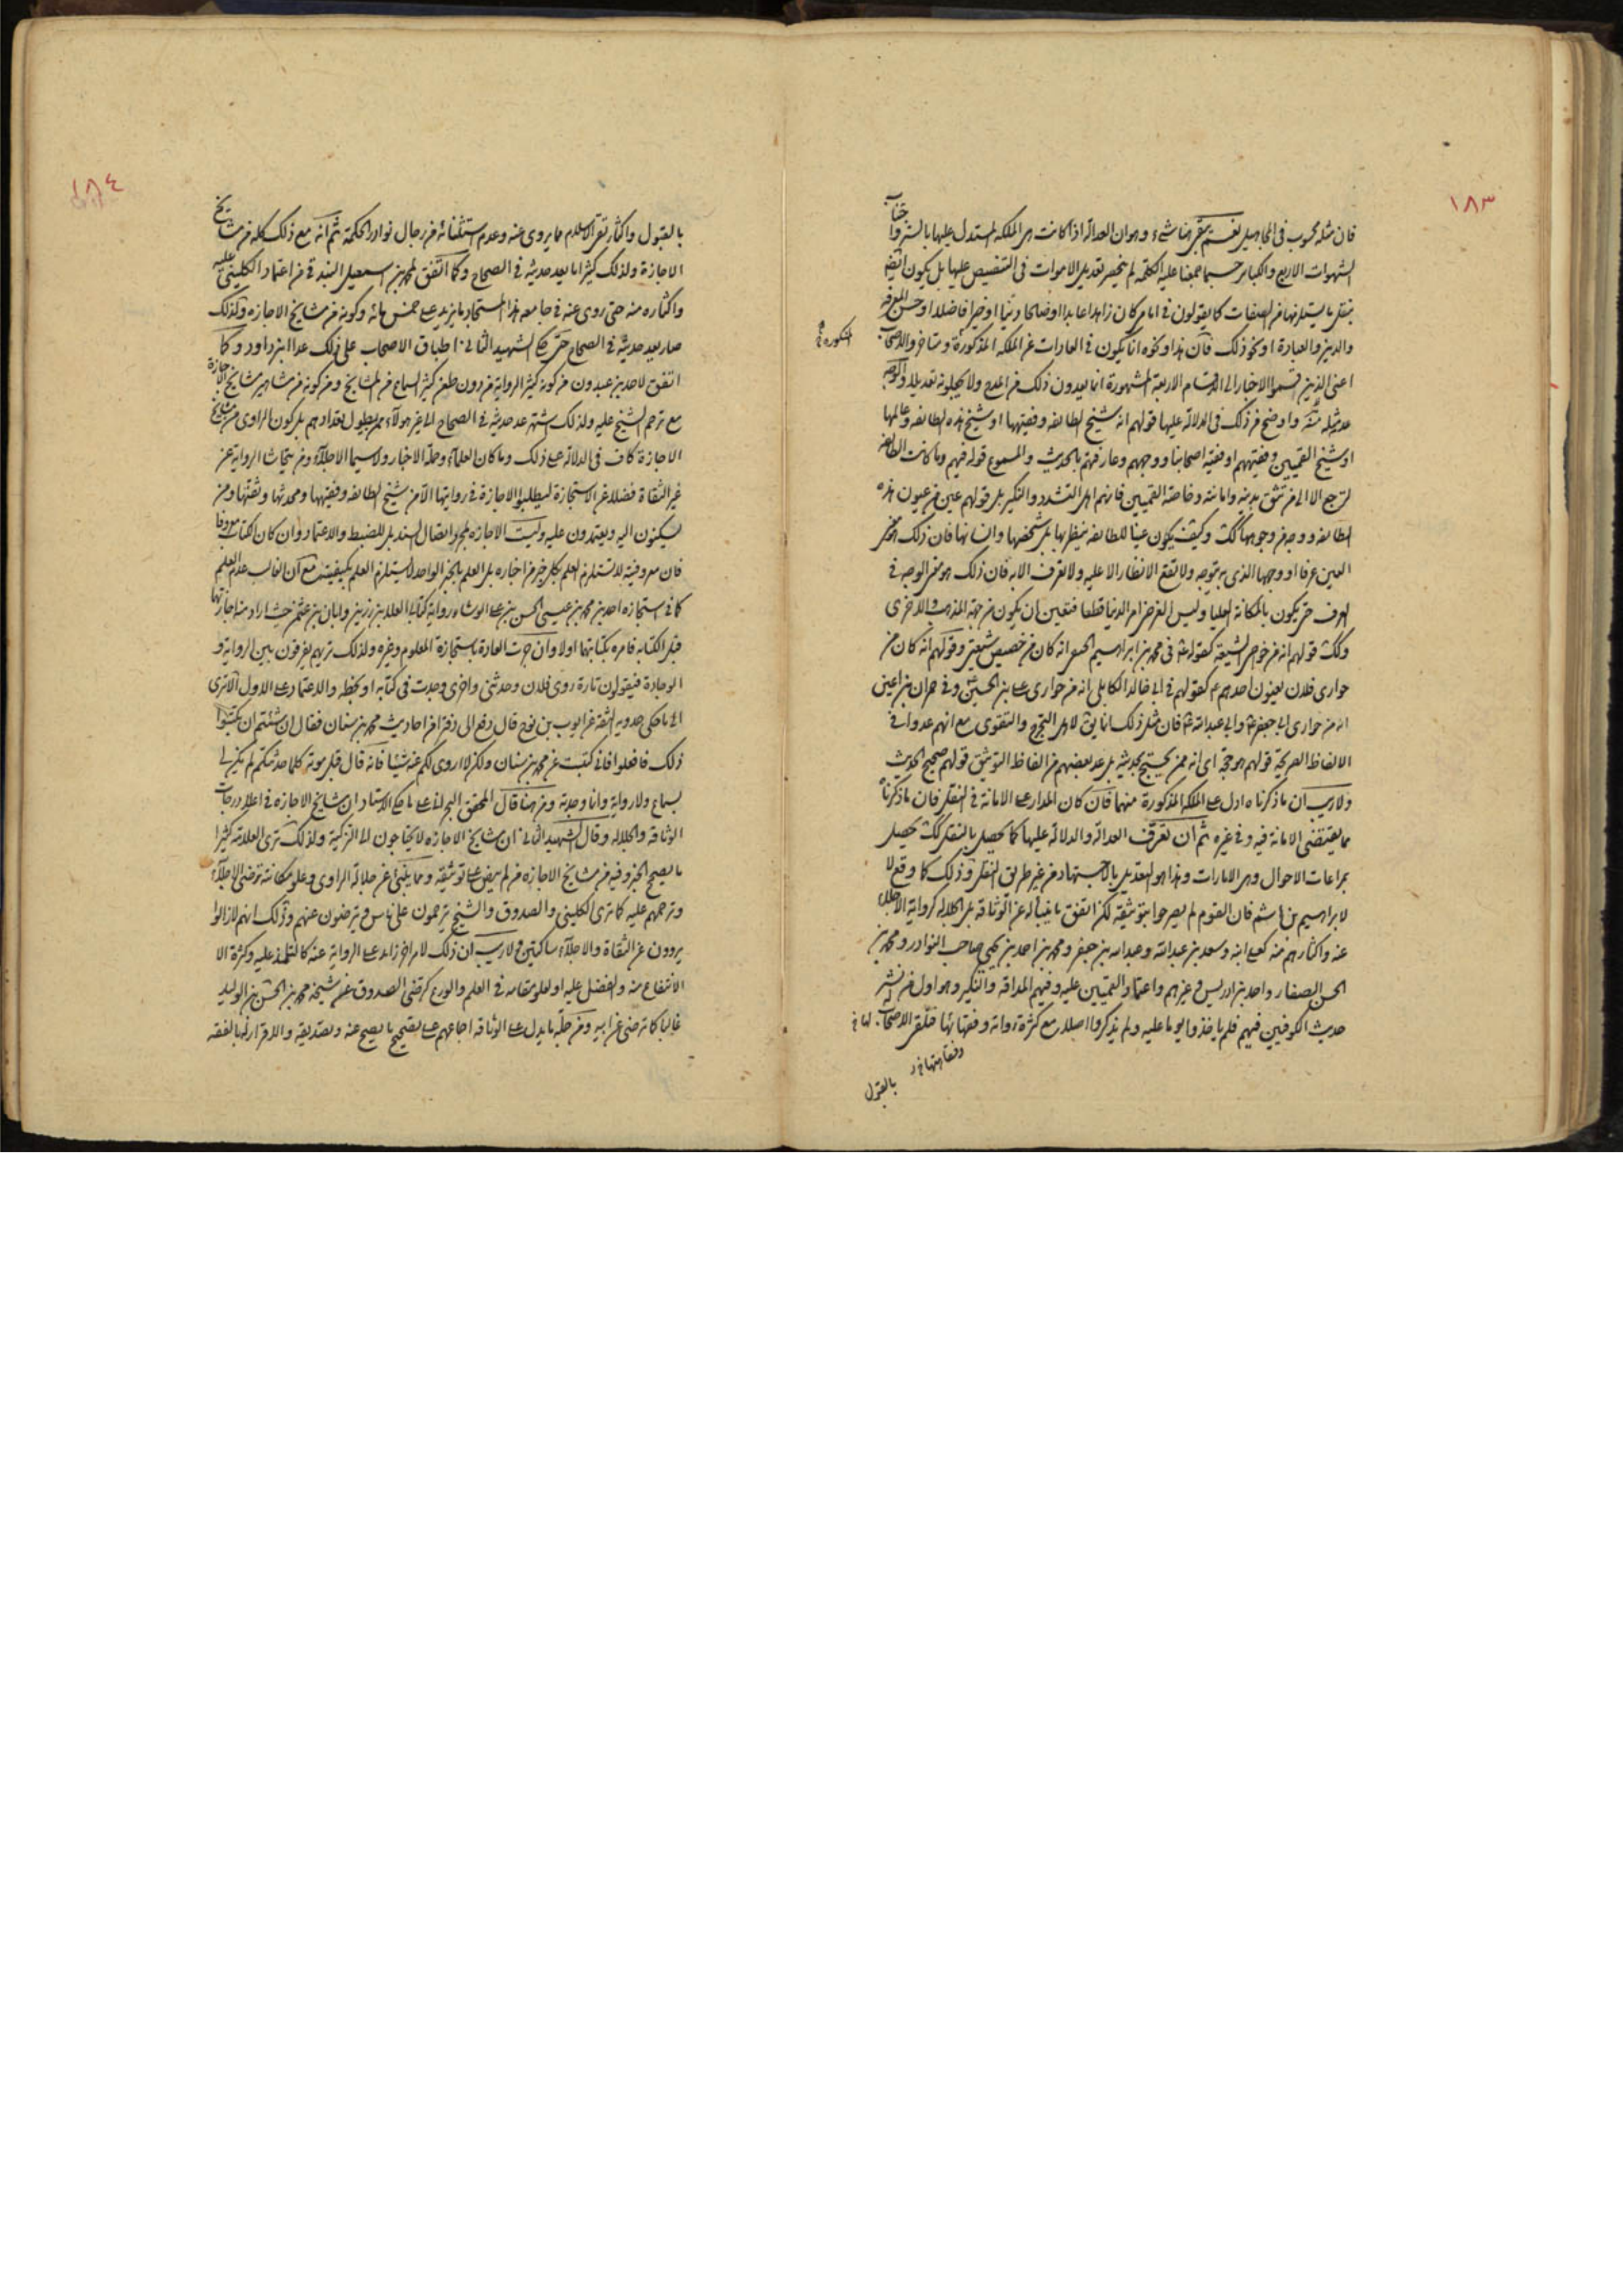 ١٨٣
فان مثله محسوب في المجاهيل نعم بقى هنا شيء وهو ان العدالة اذا كانت هي الملكة المستدل عليها بالستر واجتناب
الشهوات الاربع والكباير حسبما جمعنا عليه الكلمة لم ينحصر تعديل الاموات في التنصيص عليها بل يكون ايضا
بنقل ما يستلزمها من الصفات كما يقولون في امام كان زاهدا عابدا او صالحا دينا او خيرا فاضلا او حسن المعرفة
والدين والعبادة او نحو ذلك فان هذا ونحوه انما يكون في العادات عن الملكة المذكورة ومتاخروا الاصحاب
اعني الذين قسموا الاخبار الى الاقسام الاربعة المشهورة انما يعدون ذلك في المدح ولا يجعلونه تعديلا والوجه
عد مثله منه واوضح من ذلك في الدلالة عليها قولهم انه شيخ الطائفة وفقيهها او شيخ هذه الطائفة وعالمها
او شيخ القميين وفقيههم او فقيه اصحابنا ووجههم وعارفهم بالحديث والمسموع قوله فيهم وما كانت الطائفة
لترجع الا الى من تثق بدينه وامانته وخاصة القميين فانهم اهل التشدد والنكير بل قولهم عين من عيون هذه
الطائفة ووجه من وجوهها كك وكيف يكون عينا للطائفة ينظر بها بل شخصها وانسانها فان ذلك هو معنى
العين عرفا او وجهها الذي به تتوجه ولا تقع الانظار الا عليه ولا تعرف الا به فان ذلك هو معنى الوجه في
العرف حتى يكون بالمكانة العليا وليس الغرض امر الدنيا قطعا فتعين ان يكون من جهة المذهب والاخرى
وكك قولهم انه من خواص الشيعة كقوله ع في محمد بن ابراهيم الحضيني انه كان من خصيص شيعتي وقولهم انه كان من
حواري فلان يعنون احدهم ع كقولهم في ابي خالد الكابلي انه من حواري علي بن الحسين ع وفي حمران بن اعين
انه من حواري ابي جعفر ع وابي عبد الله ع فان مثل ذلك انما يق لاهل التحرج والتقوى مع انهم عدوا في
الالفاظ الصريحة قولهم هو حجة اي انه ممن يحتج بحديثه بل عد بعضهم من الفاظ التوثيق قولهم صحيح الحديث
ولا ريب ان ما ذكرناه ادل على الملكة المذكورة منهما فان كان المدار على الامانة في النقل فان ما ذكرناه
مما يقتضي الامانة فيه وفي غيره ثم ان تعرف العدالة والدلالة عليها كما يحصل بالنقل كك يحصل
بمراعات الاحوال وهي الامارات وهذا هو التعديل بالاجتهاد من غير طريق النقل وذلك كما وقع لا
لابراهيم بن هاشم فان القوم لم يصرحوا بتوثيقه لكن اتفق ما ينبئ له عن الوثاقة بل الجلالة كرواية الاجلاء
عنه واكثارهم منه كعلي ابنه وسعد بن عبد الله وعبد الله بن جعفر ومحمد بن احمد بن يحيى صاحب النوادر ومحمد بن
الحسن الصفار واحمد بن ادريس وغيرهم واعتماد القميين عليه وفيهم المداقة والنكير وهو اول من نشر
حديث الكوفيين فيهم فلم ياخذوا يوما عليه ولم ينكروا اصلا مع كثرة رواته وفقهائها فتلقى الاصحاب له
بالقبول
١٨٤
بالقبول واكثار ثقة الاسلام مما يروي عنه وعدم استثنائه من رجال نوادر الحكمة ثم انه مع ذلك كله من مشايخ
الاجازة ولذلك كثيرا ما يعد حديثه في الصحاح وكما اتفق لمحمد بن اسمعيل البندقي من اعتماد الكليني عليه
واكثاره منه حتى روى عنه في جامعه هذا المستجاد ما يزيد على خمس مائة وكونه من مشايخ الاجازة ولذلك
صار يعد حديثه في الصحاح حتى حكى الشهيد الثاني اطباق الاصحاب على ذلك عدا ابن داود وكما
اتفق لاحمد بن عبدون من كونه كثير الرواية من دون طعن كثير السماع من المشايخ ومن كونه من مشاهير مشايخ الاجازة
مع ترحم الشيخ عليه ولذلك اشتهر عد حديثه في الصحاح الى غير هولاء ممن يطول تعدادهم بل كون الراوي من مشايخ
الاجازة كاف في الدلالة على ذلك وما كان العلماء وحملة الاخبار ولا سيما الاجلاء ومن يتحاشا الرواية عن
غير الثقاة فضلا عن الاستجازة ليطلبوا الاجازة في روايتها الا من شيخ الطائفة وفقيهها ومحدثها وثقتها ومن
يسكنون اليه ويعتمدون عليه وليست الاجازة لمجرد اتصال السند بل للضبط والاعتماد وان كان الكتاب معروفا
فان معروفيته لا تستلزم العلم بكل خبر من اخباره بل العلم بالخبر الواحد لا يستلزم العلم بكيفيته مع ان الغالب عدم العلم
كما في استجازه احمد بن محمد بن عيسى الحسن بن علي الوشاء رواية كتابي العلا بن رزين وابان بن عثمن حيث اراد منه اجازتها
قبل الكتابه فامره بكتابتهما اولا وان جرت العادة باستجازة المعلوم وغيره ولذلك تريهم يفرقون بين الرواية و
الوجادة فيقولون تارة روى فلان وحدثني واخرى وجدت في كتابه او بخطه والاعتماد على الاول الا ترى
الى ما حكى حمدويه الثقة عن ايوب بن نوح قال دفع الى دفترا فيه احاديث محمد بن سنان فقال ان شئتم ان تكتبوا
ذلك فافعلوا فاني كتبت عن محمد بن سنان ولكن لا اروي لكم عنه شيئا فانه قال قبل موته كلما حدثتكم لم يكن لي
بسماع ولا رواية وانما وجدته ومن هنا قال المحقق البحراني على ما حكى الاستاد ان مشايخ الاجازه في اعلا درجات
الوثاقة والجلالة وقال الشهيد الثاني ان مشايخ الاجازه لا يحتاجون الى التزكية ولذلك ترى العلامة كثيرا
ما يصحح الخبر وفيه من مشايخ الاجازه من لم ينص على توثيقه ومما ينبئ عن جلالة الراوي وعلو مكانته ترضي الاجلاء
وترحمهم عليه كما ترى الكليني والصدوق والشيخ يترحمون على ناس ويترضون عنهم وذلك انهم لازالوا
يروون عن الثقاة والاجلاء ساكتين ولا ريب ان ذلك لامر اخر زايد على الرواية عنه كالتلمذ عليه وكثرة الا
الانتفاع منه والفضل عليه او لعلو مقامه في العلم والورع كترضي الصدوق عن شيخه محمد بن الحسن بن الوليد
غالبا كما ترضى عن ابيه ومن جملة ما يدل على الوثاقه اجماعهم على تصحيح ما يصح عنه وتصديقه والاقرار له بالفقه